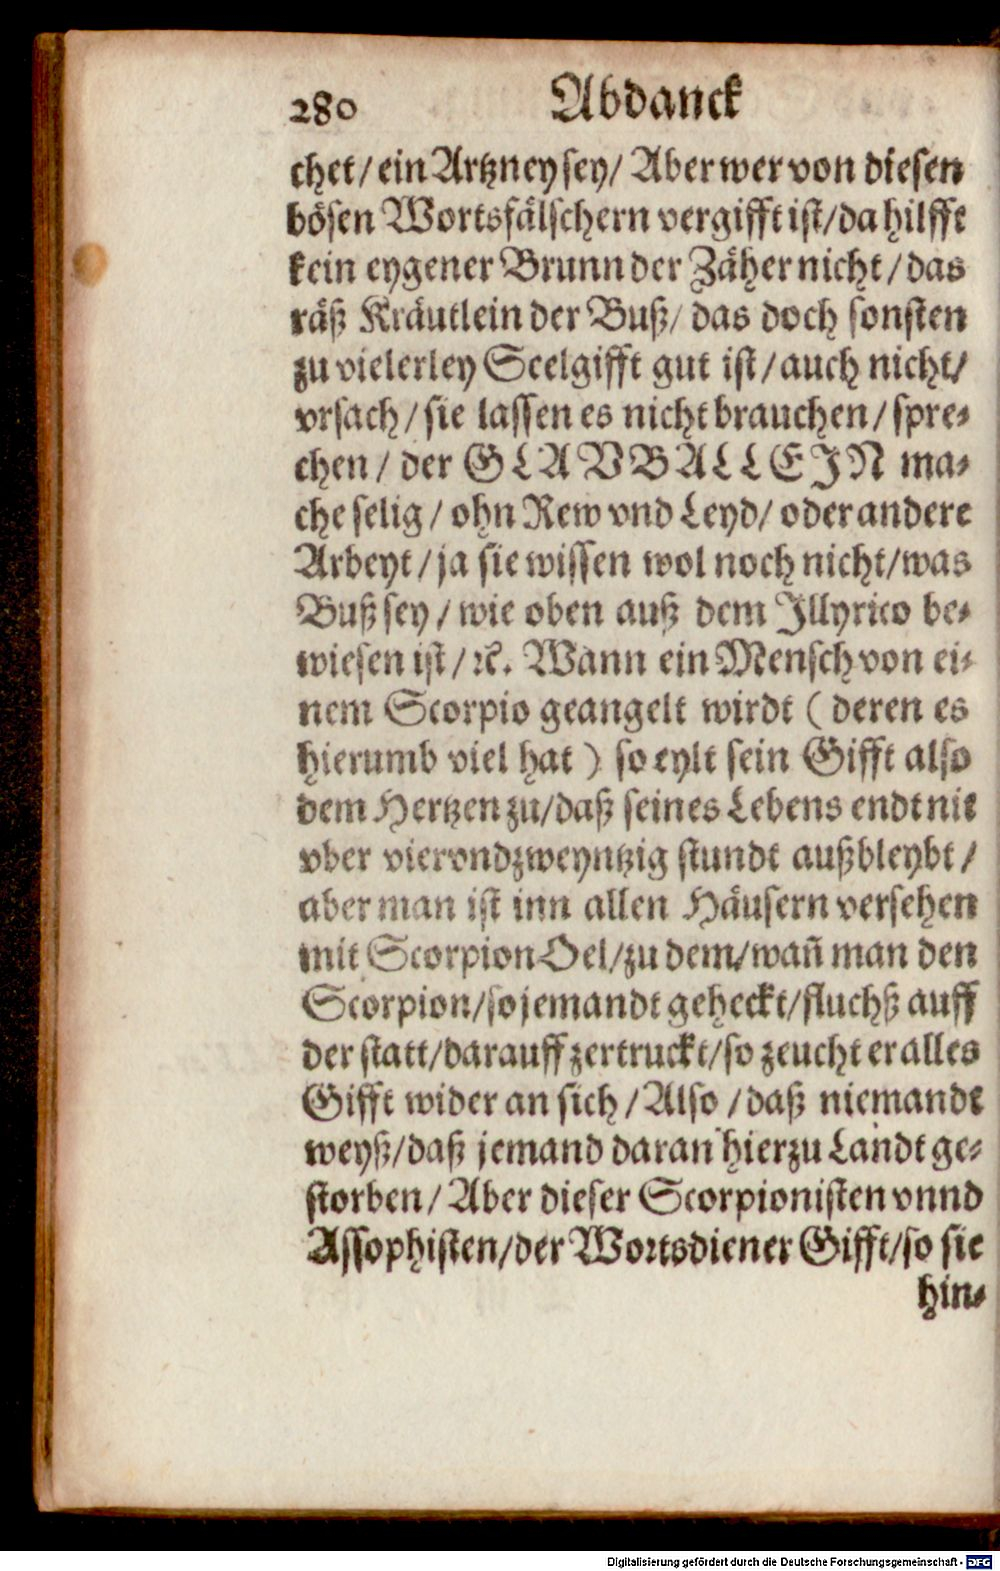 280 Abdanck
chet/ ein Artzney sey/ Aber wer von diesen
bösen Wortsfälschern vergifft ist/ da hilfft
kein eygener Brunn der Zäher nicht/ das
räß Kräutlein der Buß/ das doch sonsten
zu vielerley Seelgifft gut ist/ auch nicht/
vrsach/ sie lassen es nicht brauchen/ spre-
chen/ der GLAVBALLEIN ma-
che selig/ ohn Rew vnd Leyd/ oder andere
Arbeyt/ ja sie wissen wol noch nicht/ was
Buß sey/ wie oben auß dem Illyrico be-
wiesen ist/ ꝛc. Wann ein Mensch von ei-
nem Scorpio geangelt wirdt (deren es
hierumb viel hat) so eylt sein Gifft also
dem Hertzen zu/ daß seines Lebens endt nit
vber viervndzweyntzig stundt außbleybt/
aber man ist inn allen Häusern versehen
mit Scorpion Oel/ zu dem/ wañ man den
Scorpion/ so jemandt geheckt/ fluchß auff
der statt/ darauff zertruckt/ so zeucht er alles
Gifft wider an sich/ Also/ daß niemandt
weyß/ daß jemand daran hierzu Landt ge-
storben/ Aber dieser Scorpionisten vnnd
Assophisten/ der Wortsdiener Gifft/ so sie
hin-
Digitalisierung gefördert durch die Deutsche Forschungsgemeinschaft - DFG